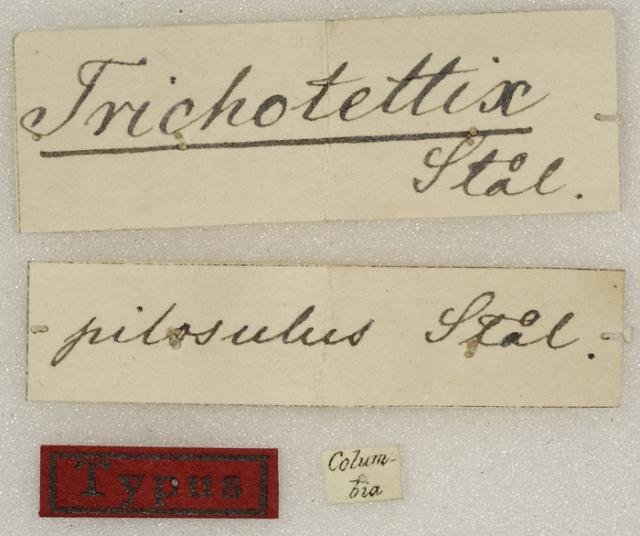 Trichotettix
Stål.
pilosulus Stål.
Typus
Colum-
bia